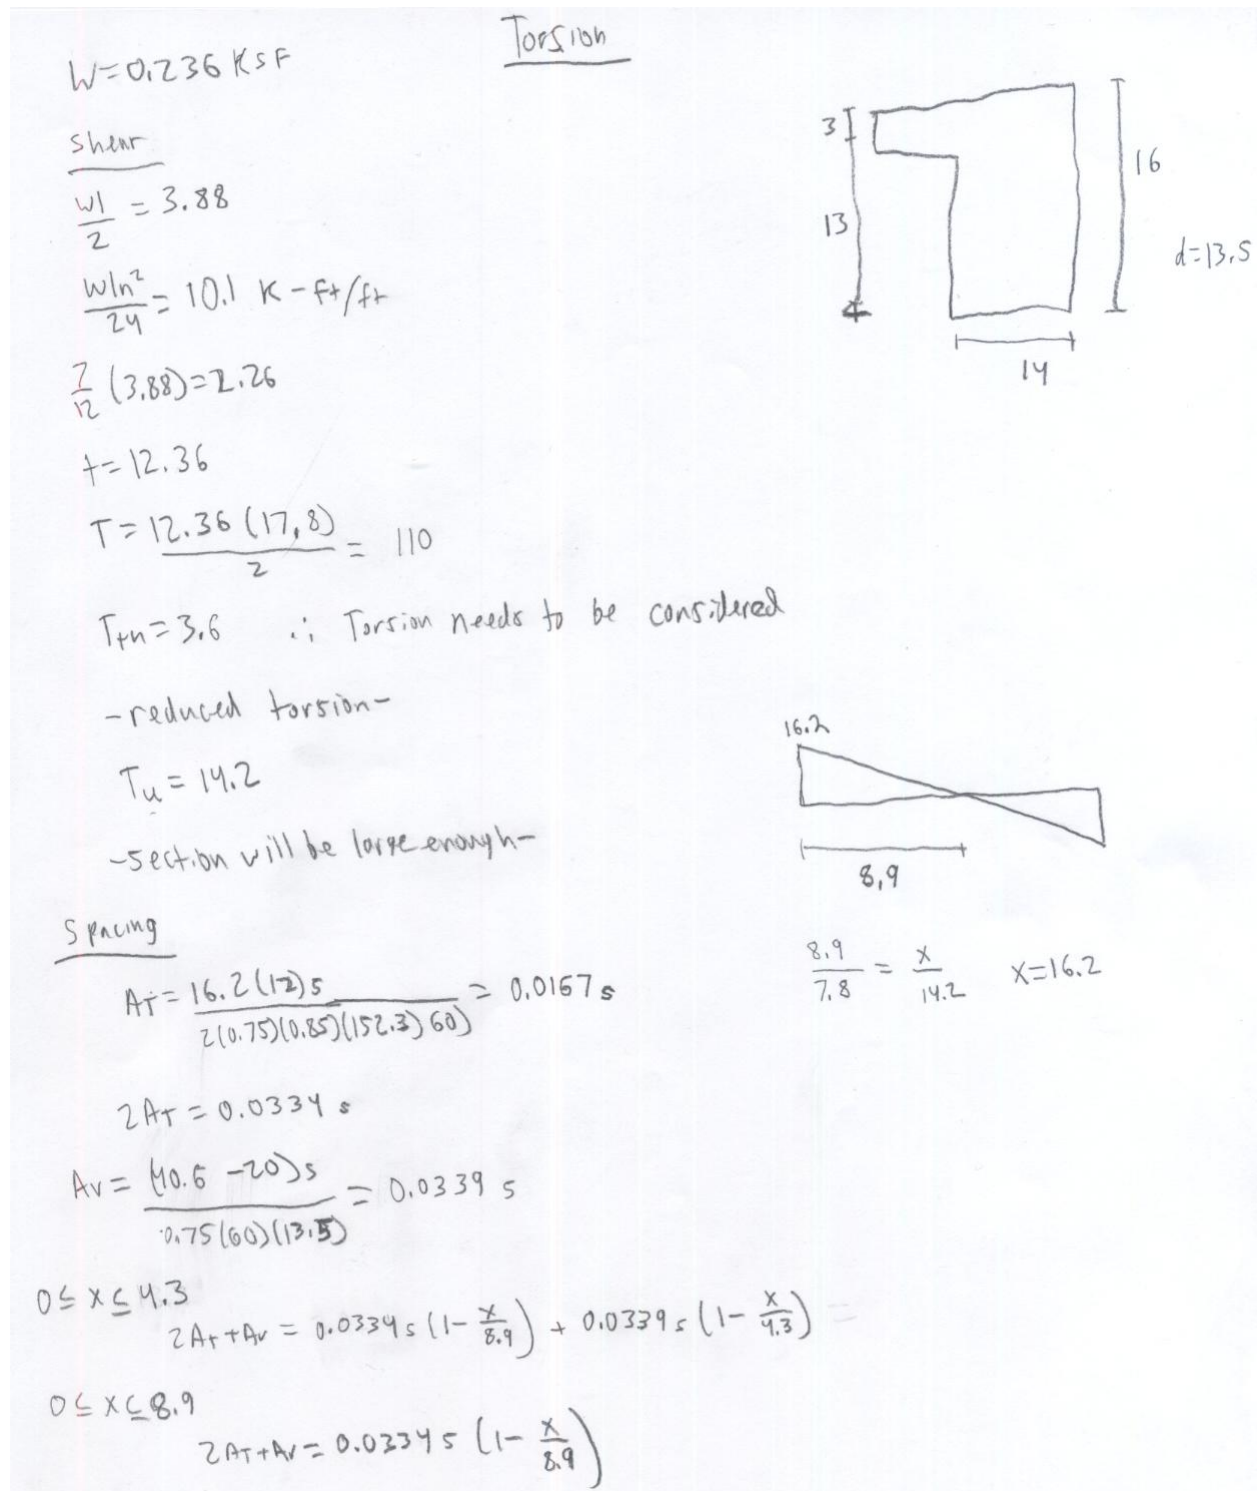 Torsion
W=0.236 KSF
Shear
wl/2 = 3.88
wln²/24 = 10.1 K-ft/ft
7/12 (3.88)=2.26
t=12.36
T= 12.36(17.8)/2 = 110
Ttn=3.6 ∴ Torsion needs to be considered
-reduced torsion-
Tu = 14.2
-section will be large enough-
Spacing
AT = 16.2(12)s / 2(0.75)(0.85)(152.3)60) = 0.0167s
2AT = 0.0334 s
Av = (40.6 -20)s / 0.75(60)(13.5) = 0.0339 s
0≤ x ≤ 4.3
2AT+Av = 0.0334s (1- x/8.9) + 0.0339s (1- x/4.3) =
0≤ x ≤ 8.9
2AT+Av = 0.0334s (1- x/8.9)
3
13
16
d=13.5
14
16.2
8.9
8.9/7.8 = x/14.2 x=16.2